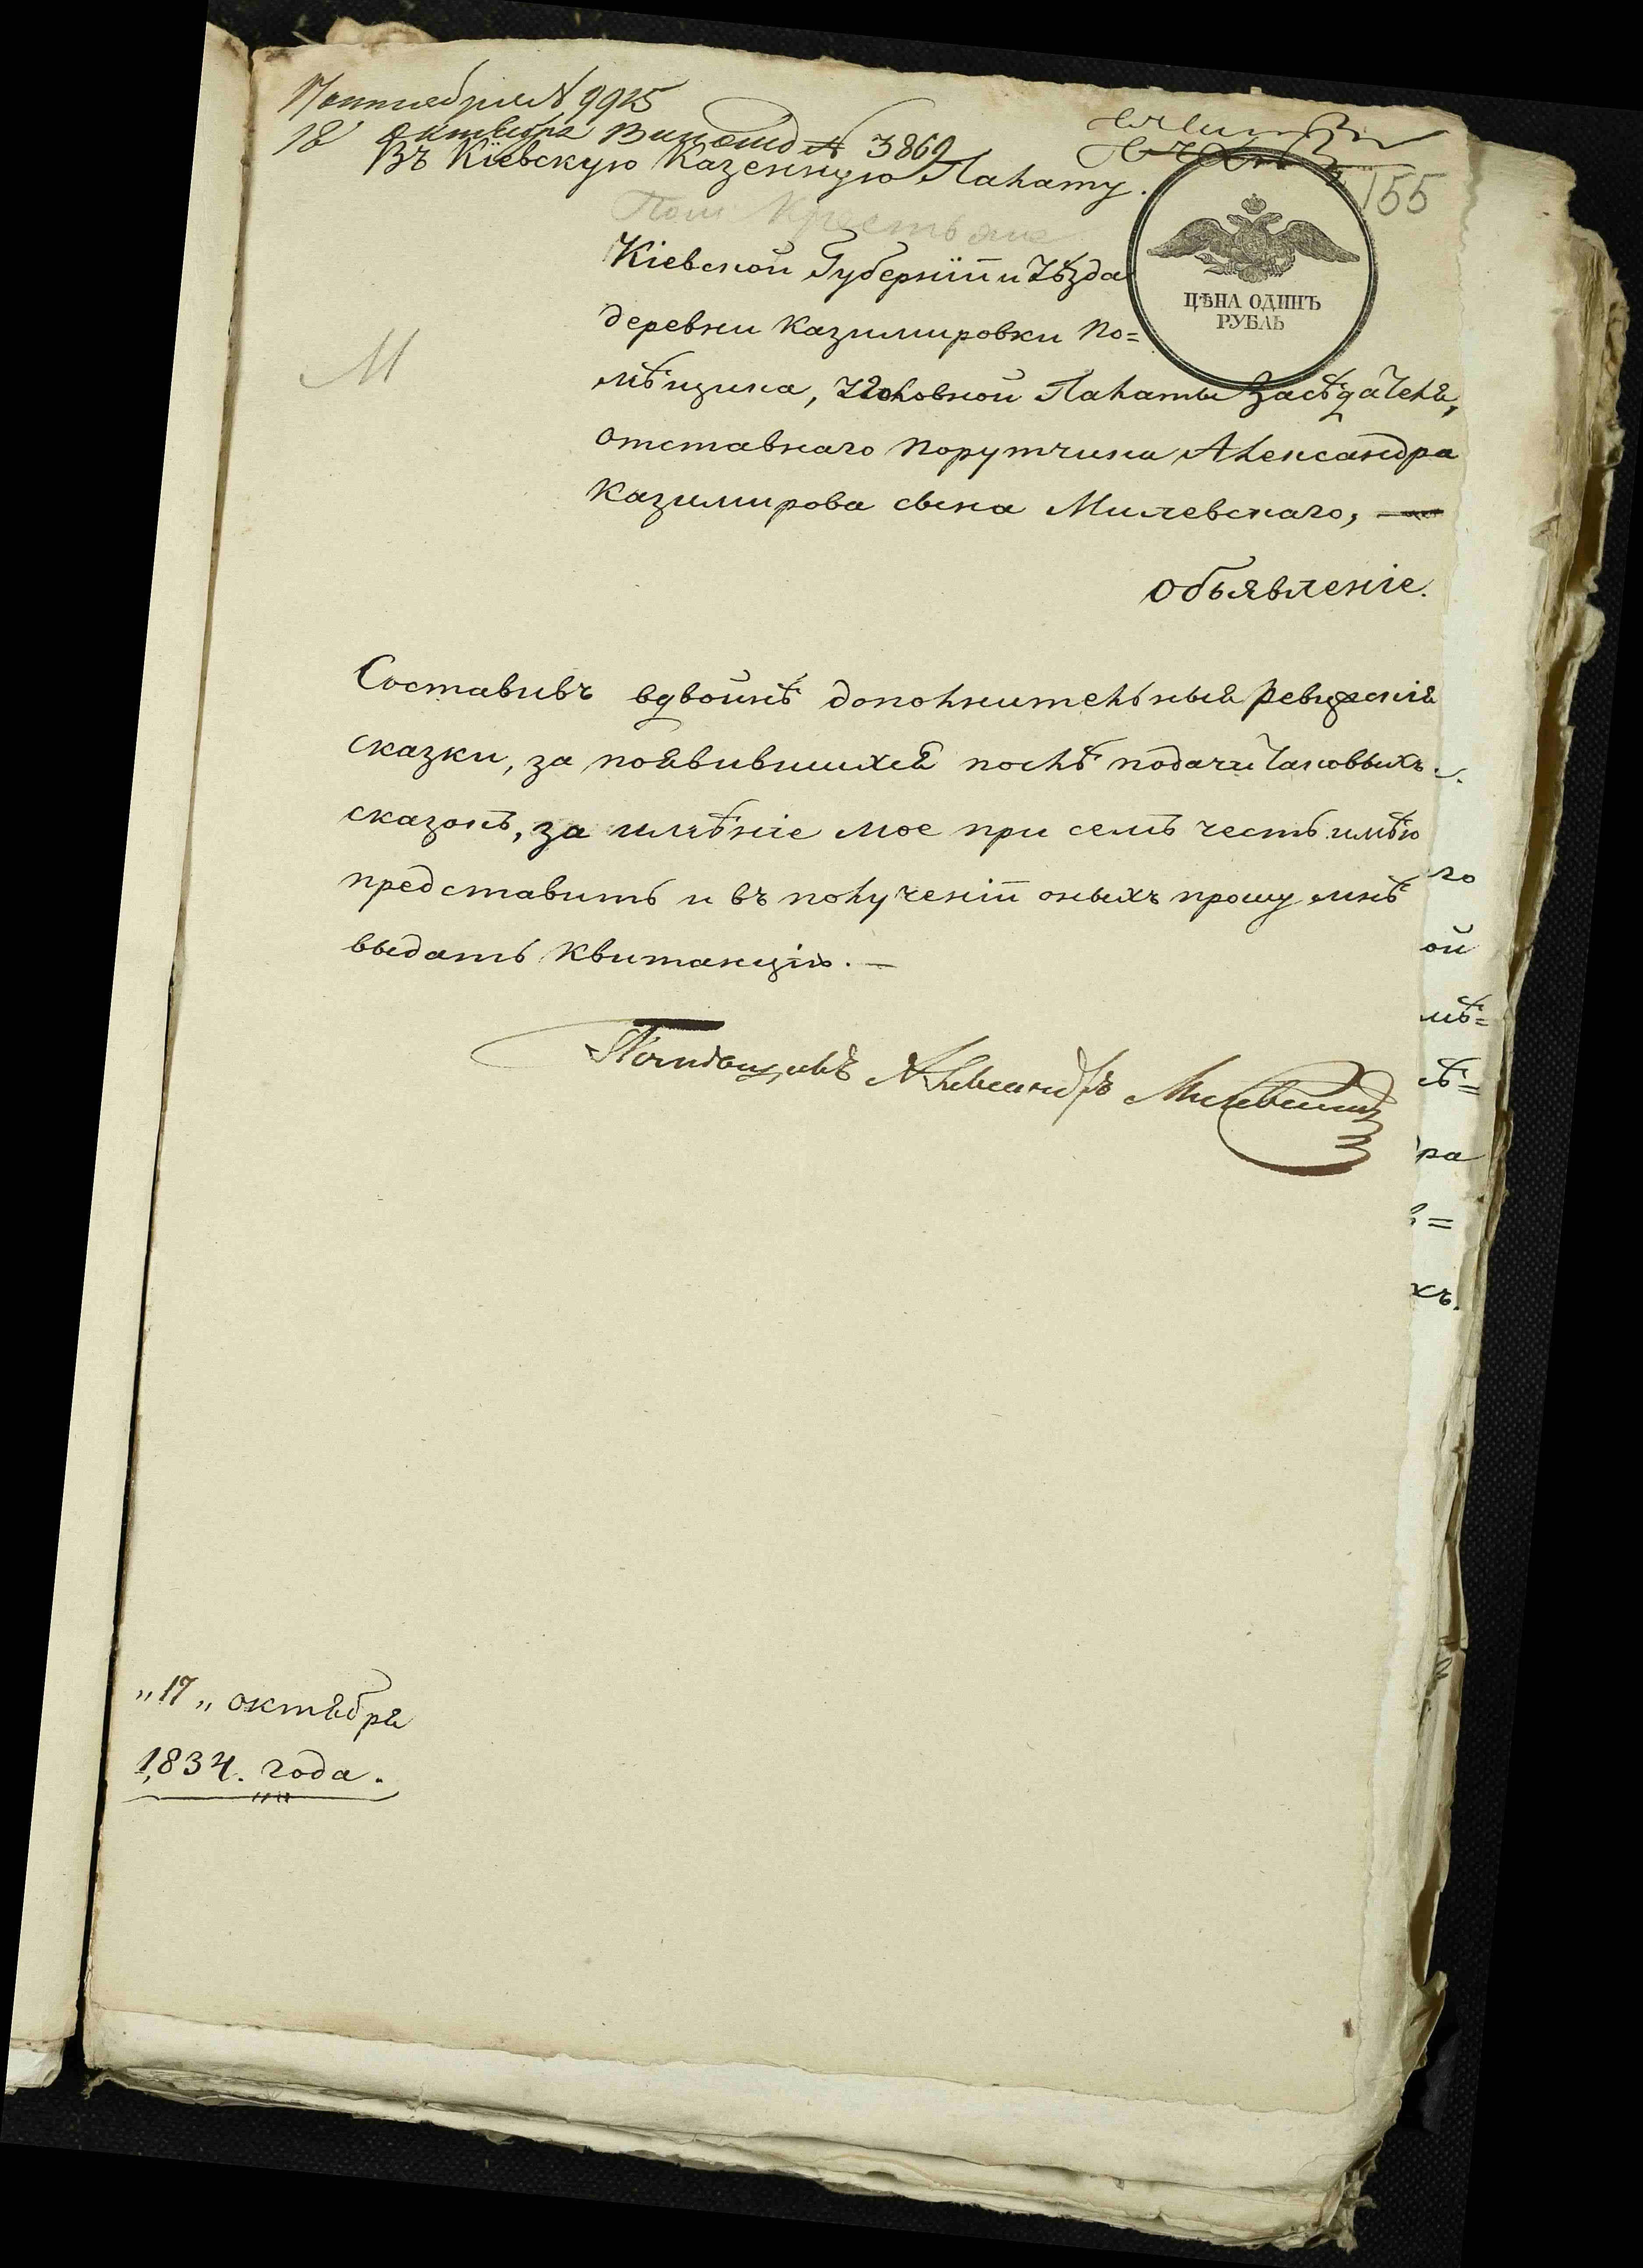 18 октября 3869
155
Въ Кіевскую Казенную Палату.
Пом Крестьяне
ЦѢНА ОДИНЪ
РУБЛЬ
Кіевской Губерніи и Уѣзда
деревни Казимировки По=
мѣщика, Уголовной Палаты Засѣдателя,
отставнаго Порутчика Александра
Казимирова сына Милевскаго, —
М
объявленіе.
Составивъ вдвойнѣ дополнительныя Ревизскія
сказки, за появившихся послѣ подачи таковыхъ
сказокъ, за имѣніе мое при семъ честь имѣю
представить и въ полученіи оныхъ прошу мнѣ
выдать Квитанцію. —
Помѣщикъ Александръ Милевскій
го
ой
мѣ=
сѣ=
ра
хъ.
„17„ октября
1834. года.